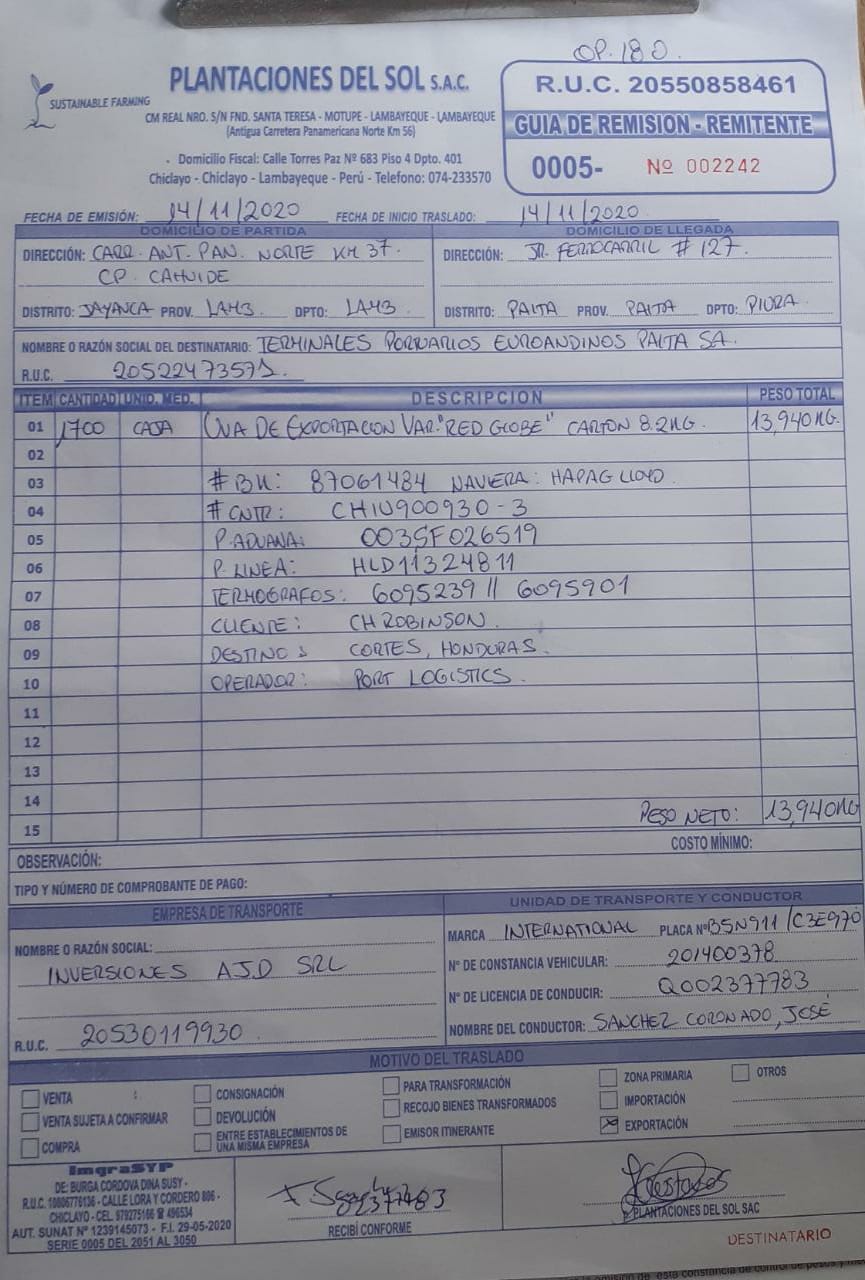 OP. 180.
SUSTAINABLE FARMING
PLANTACIONES DEL SOL S.A.C.
CM REAL NRO. S/N FND. SANTA TERESA - MOTUPE - LAMBAYEQUE - LAMBAYEQUE
(Antigua Carretera Panamericana Norte Km 56)
Domicilio Fiscal: Calle Torres Paz Nº 683 Piso 4 Dpto. 401
Chiclayo - Chiclayo - Lambayeque - Perú - Telefono: 074-233570
R.U.C. 20550858461
GUIA DE REMISION - REMITENTE
0005- Nº 002242
FECHA DE EMISIÓN: 14/11/2020 FECHA DE INICIO TRASLADO: 14/11/2020
DOMICILIO DE PARTIDA
DIRECCIÓN: CARR. ANT. PAN. NORTE KM 37.
CP. CAHUIDE
DISTRITO: JAYANCA PROV. LAMB. DPTO: LAMB.
DOMICILIO DE LLEGADA
DIRECCIÓN: JR. FERROCARRIL # 127.
DISTRITO: PAITA PROV. PAITA DPTO: PIURA.
NOMBRE O RAZÓN SOCIAL DEL DESTINATARIO: TERMINALES PORTUARIOS EUROANDINOS PAITA SA.
R.U.C. 20522473571.
ITEM CANTIDAD UNID. MED. DESCRIPCION PESO TOTAL
01 1700 CAJA UVA DE EXPORTACION VAR. "RED GLOBE" CARTON 8.2KG. 13,940KG.
02
03 # BK: 87061484 NAVIERA: HAPAG LLOYD.
04 # CNTR: CHIU900930-3
05 P. ADUANA: 003SF026519
06 P. LINEA: HLD11324811
07 TERMOGRAFOS: 6095239 // 6095901
08 CLIENTE: CH ROBINSON.
09 DESTINO: CORTES, HONDURAS.
10 OPERADOR: PORT LOGISTICS.
11
12
13
14
15 PESO NETO: 13,940KG
OBSERVACIÓN: COSTO MÍNIMO:
TIPO Y NÚMERO DE COMPROBANTE DE PAGO:
EMPRESA DE TRANSPORTE
NOMBRE O RAZÓN SOCIAL:
INVERSIONES AJD SRL
R.U.C. 20530119930
UNIDAD DE TRANSPORTE Y CONDUCTOR
MARCA INTERNATIONAL PLACA Nº B5N911/C3E970
Nº DE CONSTANCIA VEHICULAR: 201400378
Nº DE LICENCIA DE CONDUCIR: Q002377783
NOMBRE DEL CONDUCTOR: SANCHEZ CORONADO, JOSÉ
MOTIVO DEL TRASLADO
VENTA CONSIGNACIÓN PARA TRANSFORMACIÓN ZONA PRIMARIA OTROS
VENTA SUJETA A CONFIRMAR DEVOLUCIÓN RECOJO BIENES TRANSFORMADOS IMPORTACIÓN
COMPRA ENTRE ESTABLECIMIENTOS DE UNA MISMA EMPRESA EMISOR ITINERANTE EXPORTACIÓN
ImgraSYP
DE: BURGA CORDOVA DINA SUSY -
R.U.C. 10806776136 - CALLE LORA Y CORDERO 806 -
CHICLAYO - CEL. 979275166 ☎ 496534
AUT. SUNAT Nº 1239145073 - F.I. 29-05-2020
SERIE 0005 DEL 2051 AL 3050
RECIBÍ CONFORME
P. PLANTACIONES DEL SOL SAC
DESTINATARIO